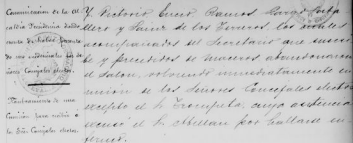 Comunicación de la Al-
caldía Presidencia dando
cuenta de
de sus individuos los se-
ñores Concejales electos.
Nombramiento de una
Comisión para recibir á
los Sres. Concejales electos.
Y. Victorio Ramos
llero y Sanz de los Terreros, los cuales
acompañados del Secretario que suscri-
be y precedidos de maceros abandonaron
el Salón, volviendo inmediatamente en
unión de los Señores Concejales electos
excepto el Sr. Trompeta, cuya asistencia
excusó el Sr. Abellan por hallarse en-
fermo.